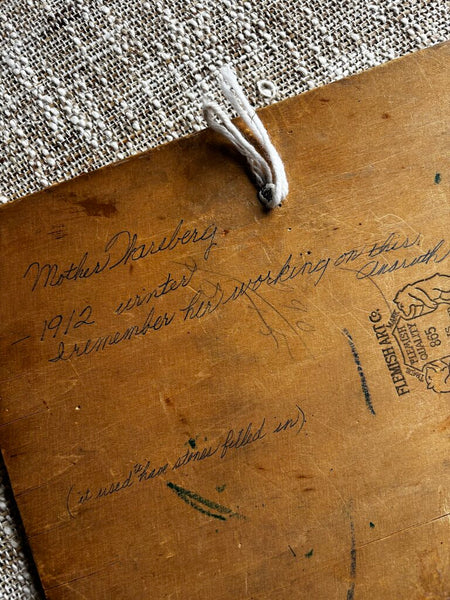 Mother Tharsberg
- 1912 winter
I remember her working on this.
(it used to have stones fitted in)
FLEMISH ART Co.
QUALITY
865